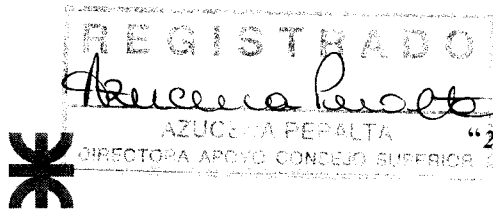 REGISTRADO
Azucena Peralta
AZUCENA PERALTA
"2
DIRECTORA APOYO CONSEJO SUPERIOR